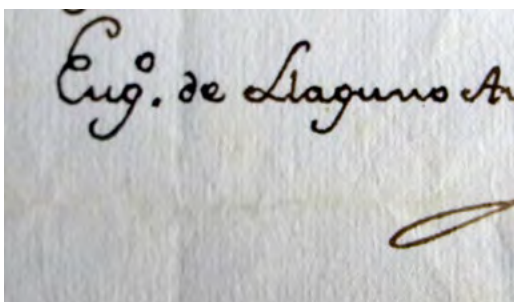 Eugº. de Llaguno